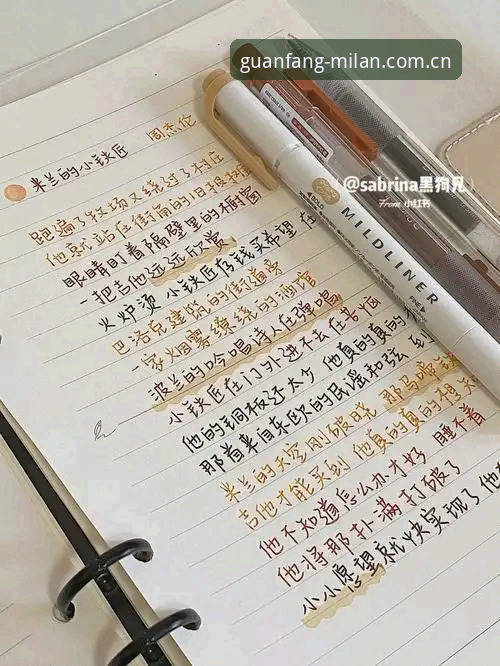 guanfang-milan.com.cn
米兰的小铁匠 周杰伦
跑遍了牧场又绕过了村庄
他就站在街角的旧报
眼睛盯着隔壁里的橱窗
一把吉他远远欣赏
火炉烫 小铁匠存钱买希望 在
巴洛克建筑的街道旁
一家烟雾缭绕的酒馆
波兰的吟唱诗人在弹唱
小铁匠在门外进不去在苦恼
他的铜板还太少 他真的真的
那首来自东欧的民谣和弦 到 那马蹄铁
米兰的天空刚破晓
吉他才能买到 他真的真的想
他不知道怎么办才好 睡不着
他将那扑满打破了
小小愿望就快实现了 他
@sabrina黑狗兄
From 小红书
MILDLINER
BOLD
FINE